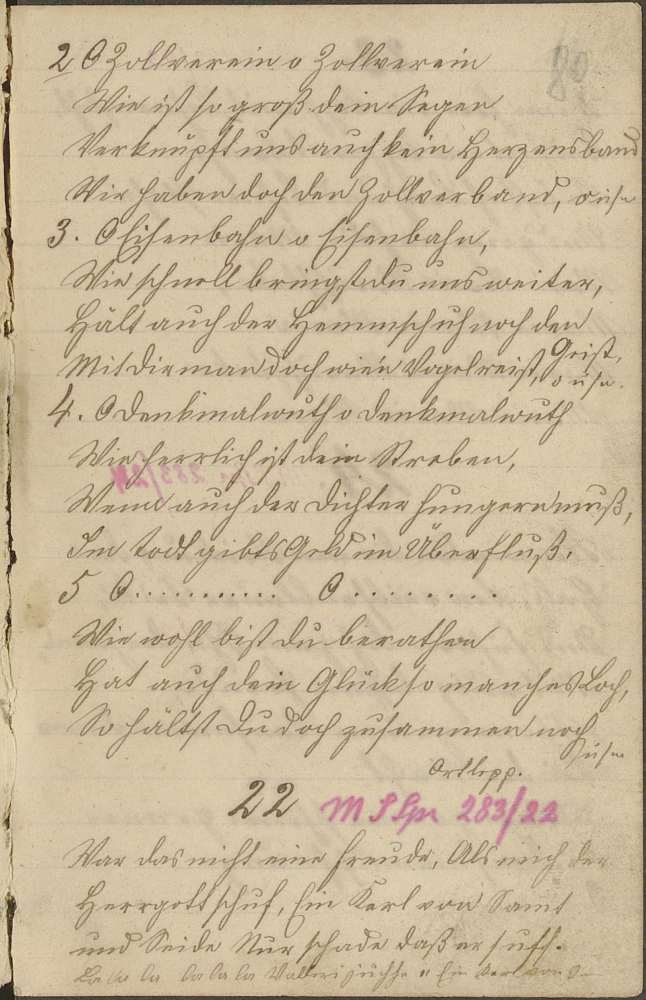 80
2 O Zollverein o Zollverein
Wie ist so groß dein Segen
Verknüpft uns auch kein Herzensband
Wir haben doch den Zollverband, o u s w
3. O Eisenbahn o Eisenbahn,
Wie schnell bringst du uns weiter,
Hält auch der Hemmschuh noch den
Geist,
Mit dir man doch wie'n Vogel reist, o u s w.
4. O Denkmalwuth o Denkmalwuth
Wie herrlich ist dein Streben,
Wenn auch der Dichter hungern muß,
Im Todt gibts Geld im Überfluß.
5 O........... O..........
Wie wohl bist du berathen
Hat auch dein Glück so manches Loch,
So hältst Du doch zusammen noch
u s w
Ortlepp.
22 M S Spr 283/22
War das nicht eine Freude, Als mich der
Herrgott schuf, Ein Kerl von Samt
und Seide Nur schade daß er suff.
La la la la la la Valleri juchhe u Ein Kerl von S